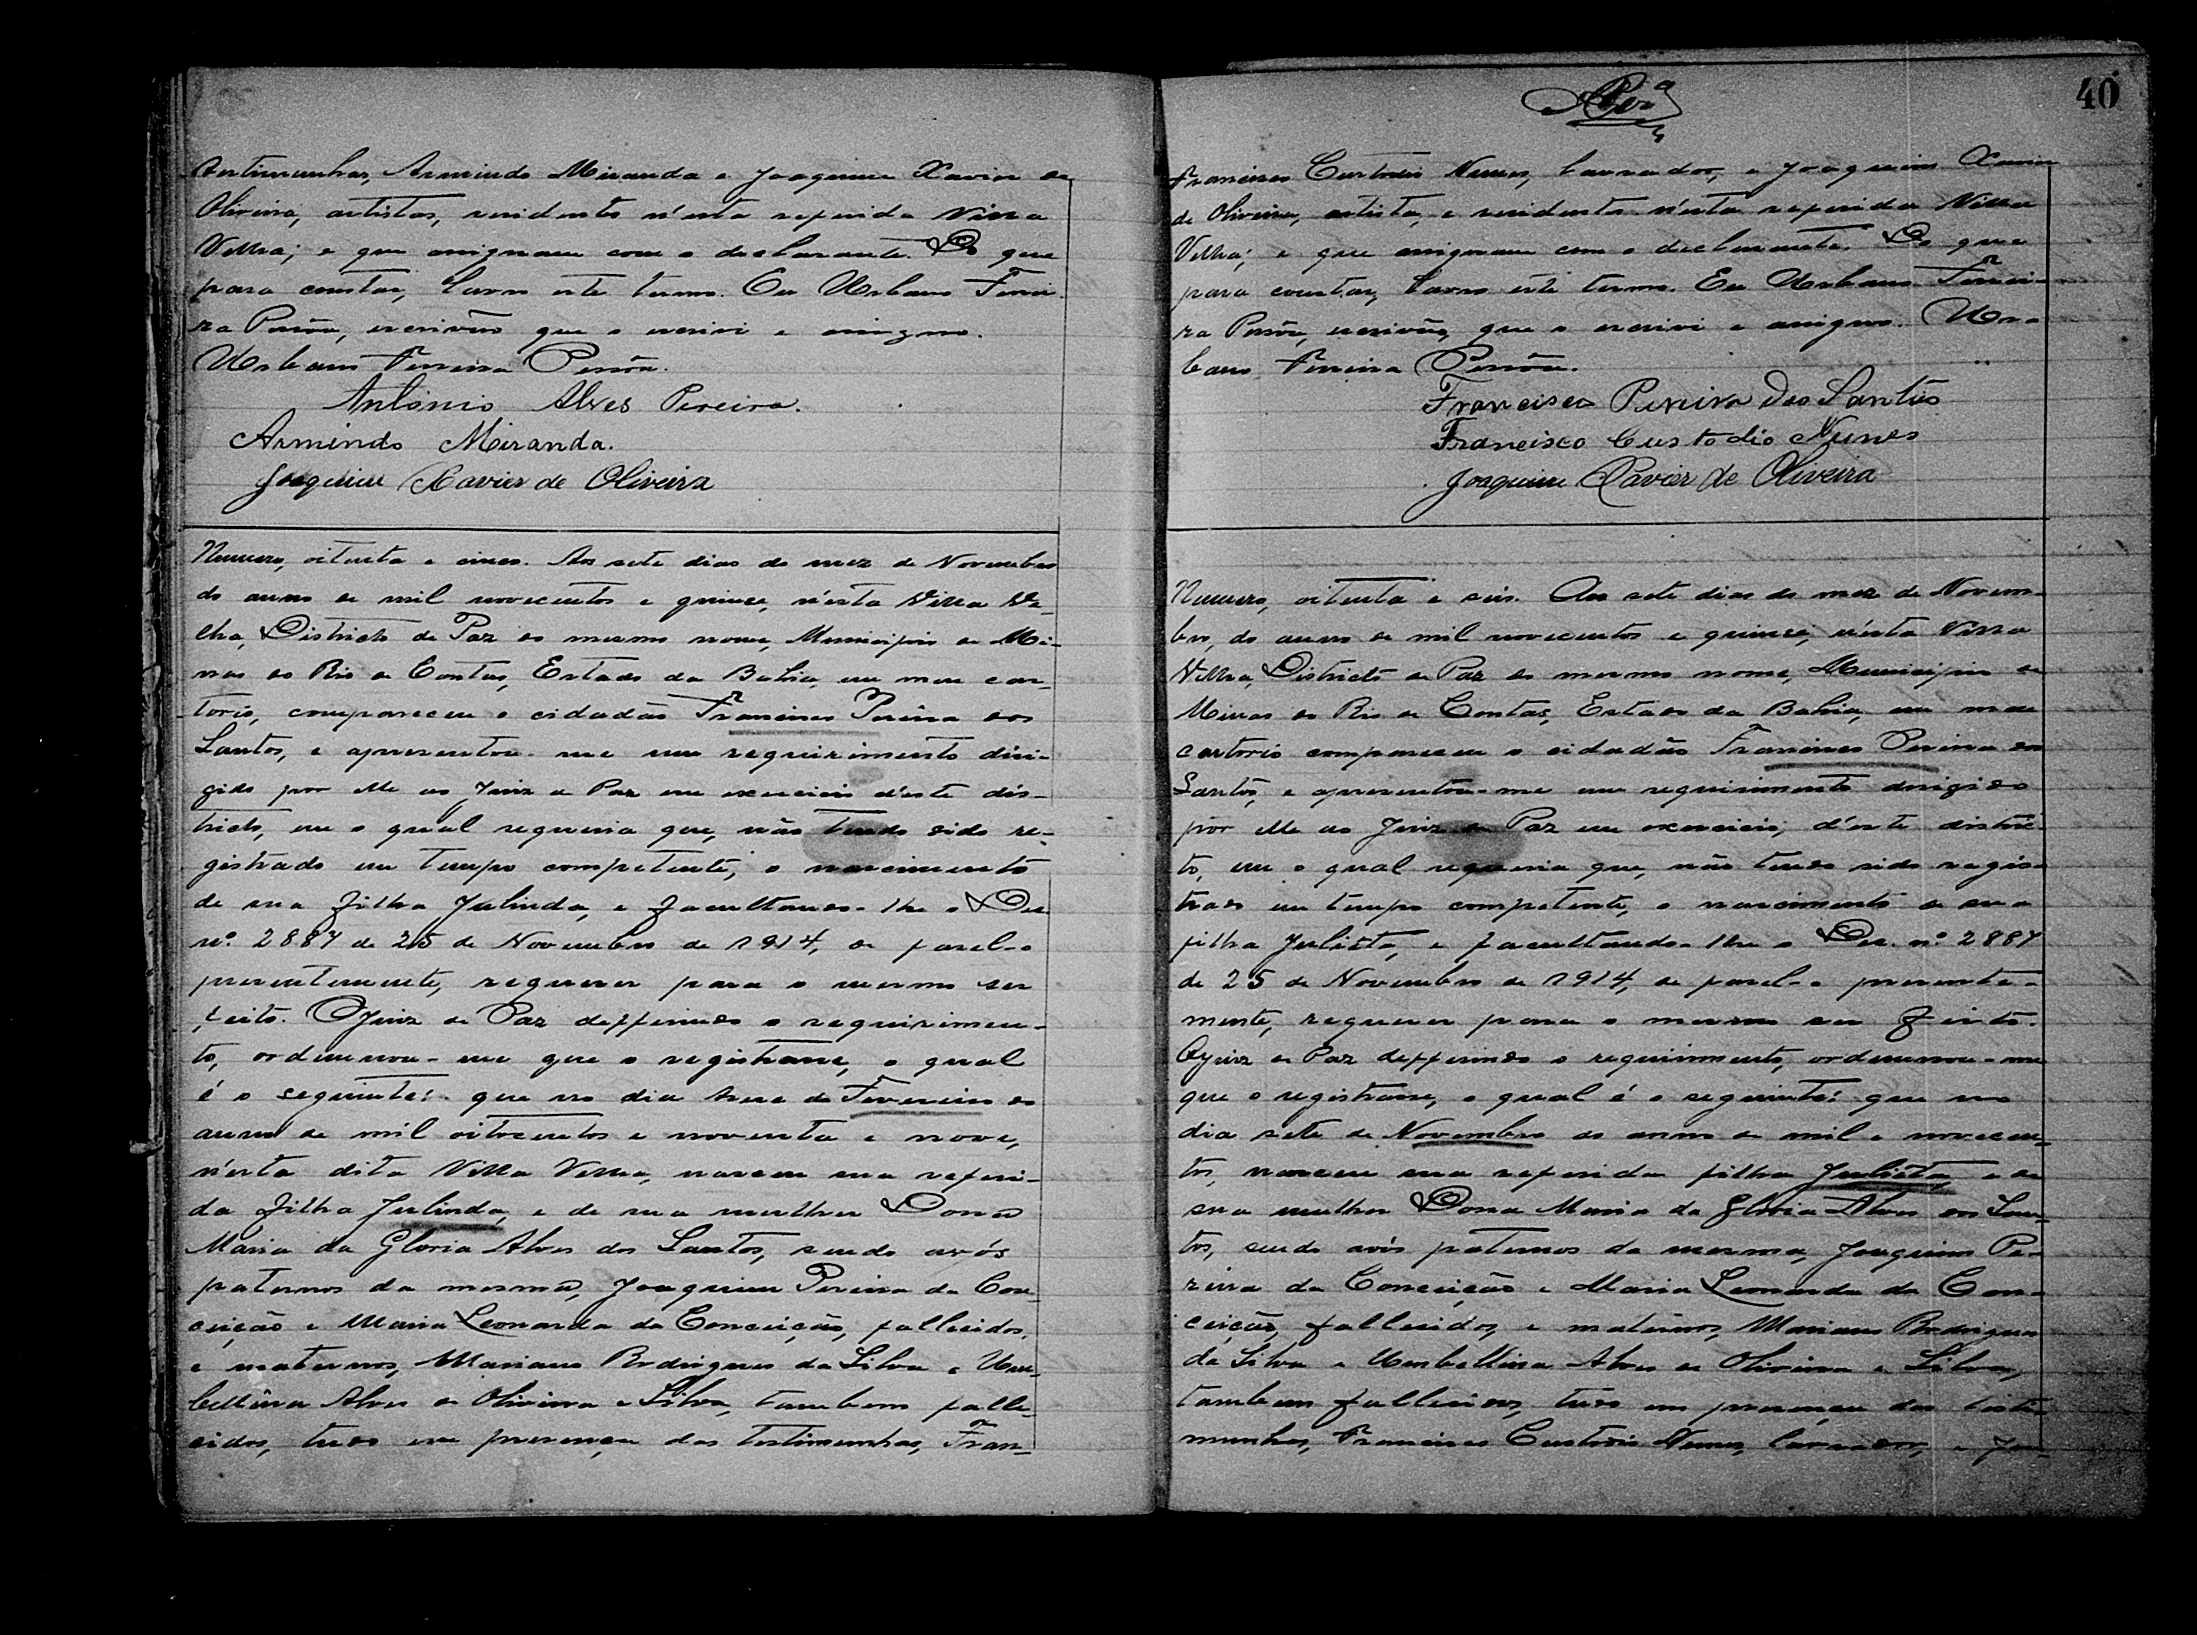 Testimunhas, Armindo Miranda e Joaquim Xavier de
Oliveira, artistas, residentes n'esta referida Villa
Velha; e que assignam com o declarante. Do que
para constar, lavro este termo. Eu Urbano Ferrei-
ra Pessôa, escrivão que o escrivi e assigno.
Urbano Ferreira Pessôa.
Antonio Alves Pereira.
Armindo Miranda.
Joaquim Xavier de Oliveira
Numero, oitenta e cinco. Aos sete dias do mez de Novembro
do anno de mil novecentos e quinze, n'esta Villa Ve-
lha, Districto de Paz do mesmo nome, Municipio de Mi-
nas do Rio de Contas, Estado da Bahia, em meu car-
torio, compareceu o cidadão Francisco Pereira dos
Santos, e apresentou-me um requirimento diri-
gido por elle ao Juiz de Paz em exercicio d'este dis-
tricto, em o qual requeria que, não tendo sido re-
gistrado em tempo competente, o nascimento
de sua filha Julinda, e facultando-lhe o Dec.
nº 2887 de 25 de Novembro de 1914, de fasel-o
presentemente, requerer para o mesmo ser
feito. O Juiz de Paz defferindo o requirimen-
to, ordennou-me que o registrasse, o qual
é o seguinte: que no dia treze de Fevereiro do
anno de mil oitocentos e noventa e nove,
n'esta dita Villa Velha, nasceu sua referi-
da filha Julinda, e de sua mulher Dona
Maria da Gloria Alves dos Santos, sendo avós
paternos da mesma, Joaquim Pereira da Con-
ceição e Maria Leonarda da Conceição, fallecidos,
e maternos, Mariano Rodrigues da Silva e Um-
bellina Alves de Oliveira e Silva, tambem falle-
cidos, tudo em presença das testimunhas, Fran-
40
Francisco Custodio Nunes, lavrador, e Joaquim Xavier
de Oliveira, artista, e residentes n'esta referida Villa
Velha; e que assignam com o declarante. Do que
para constar, lavro este termo. Eu Urbano Ferrei-
ra Pessôa, escrivão, que o escrivi e assigno. Ur-
bano Ferreira Pessôa.
Francisco Pereira dos Santos
Francisco Custodio Nunes
Joaquim Xavier de Oliveira
Numero, oitenta e seis. Aos sete dias do mez de Novem-
bro, do anno de mil novecentos e quinze, n'esta Villa
Velha, Districto de Paz do mesmo nome, Municipio de
Minas do Rio de Contas, Estado da Bahia, em meu
cartorio compareceu o cidadão Francisco Pereira dos
Santos, e apresentou-me um requirimento dirigido
por elle ao Juiz de Paz em exercicio, d'este distric-
to, em o qual requeria que, não tendo sido regis-
trado em tempo competente, o nascimento de sua
filha Julieta, e facultando-lhe o Dec. nº 2887
de 25 de Novembro de 1914, de fasel-o presente-
mente, requerer para o mesmo ser feito.
O Juiz de Paz defferindo o requirimento, ordennou-me
que o registrasse, o qual é o seguinte: que no
dia sete de Novembro do anno de mil e novecen-
tos, nasceu sua referida filha Julieta, e de
sua mulher Dona Maria da Gloria Alves dos San-
tos, sendo avós paternos da mesma, Joaquim Pe-
reira da Conceição e Maria Leonarda da Con-
ceição, fallecidos, e maternos, Mariano Rodrigues
da Silva e Umbellina Alves de Oliveira e Silva,
tambem fallecidos, tudo em presença das testi-
munhas, Francisco Custodio Nunes, lavrador, e Joa-